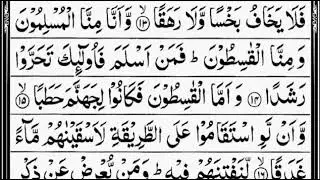 فَلَا يَخَافُ بَخْسًا وَّلَا رَهَقًا ۙ﴿۱۳﴾ وَّاَنَّا مِنَّا الْمُسْلِمُوْنَ
وَ مِنَّا الْقٰسِطُوْنَ ؕ فَمَنْ اَسْلَمَ فَاُولٰٓئِكَ تَحَرَّوْا
رَشَدًا ﴿۱۴﴾ وَ اَمَّا الْقٰسِطُوْنَ فَكَانُوْا لِجَهَنَّمَ حَطَبًا ۙ﴿۱۵﴾
وَّ اَنْ لَّوِ اسْتَقَامُوْا عَلَی الطَّرِیْقَةِ لَاَسْقَیْنٰهُمْ مَّآءً
غَدَقًا ۙ﴿۱۶﴾ لِّنَفْتِنَهُمْ فِیْهِ ؕ وَمَنْ یُّعْرِضْ عَنْ ذِكْرِ